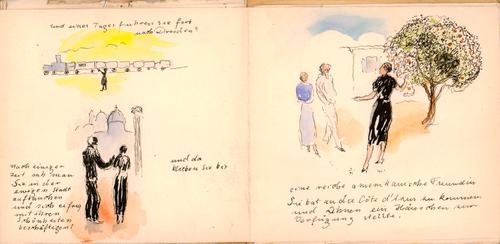 und eines Tages fuhren sie fort
nach
nach einiger
Zeit sah man
Sie in der
ewigen Stadt
auftauchen
und sich eifrig
mit ihren
Schönheiten
beschäftigen!
und da
bleiben Sie bis
eine reiche amerikanische Freundin
Sie bat an die Côte d'Azur zu kommen
und Ihnen ein Häuschen zur
Verfügung stellte.